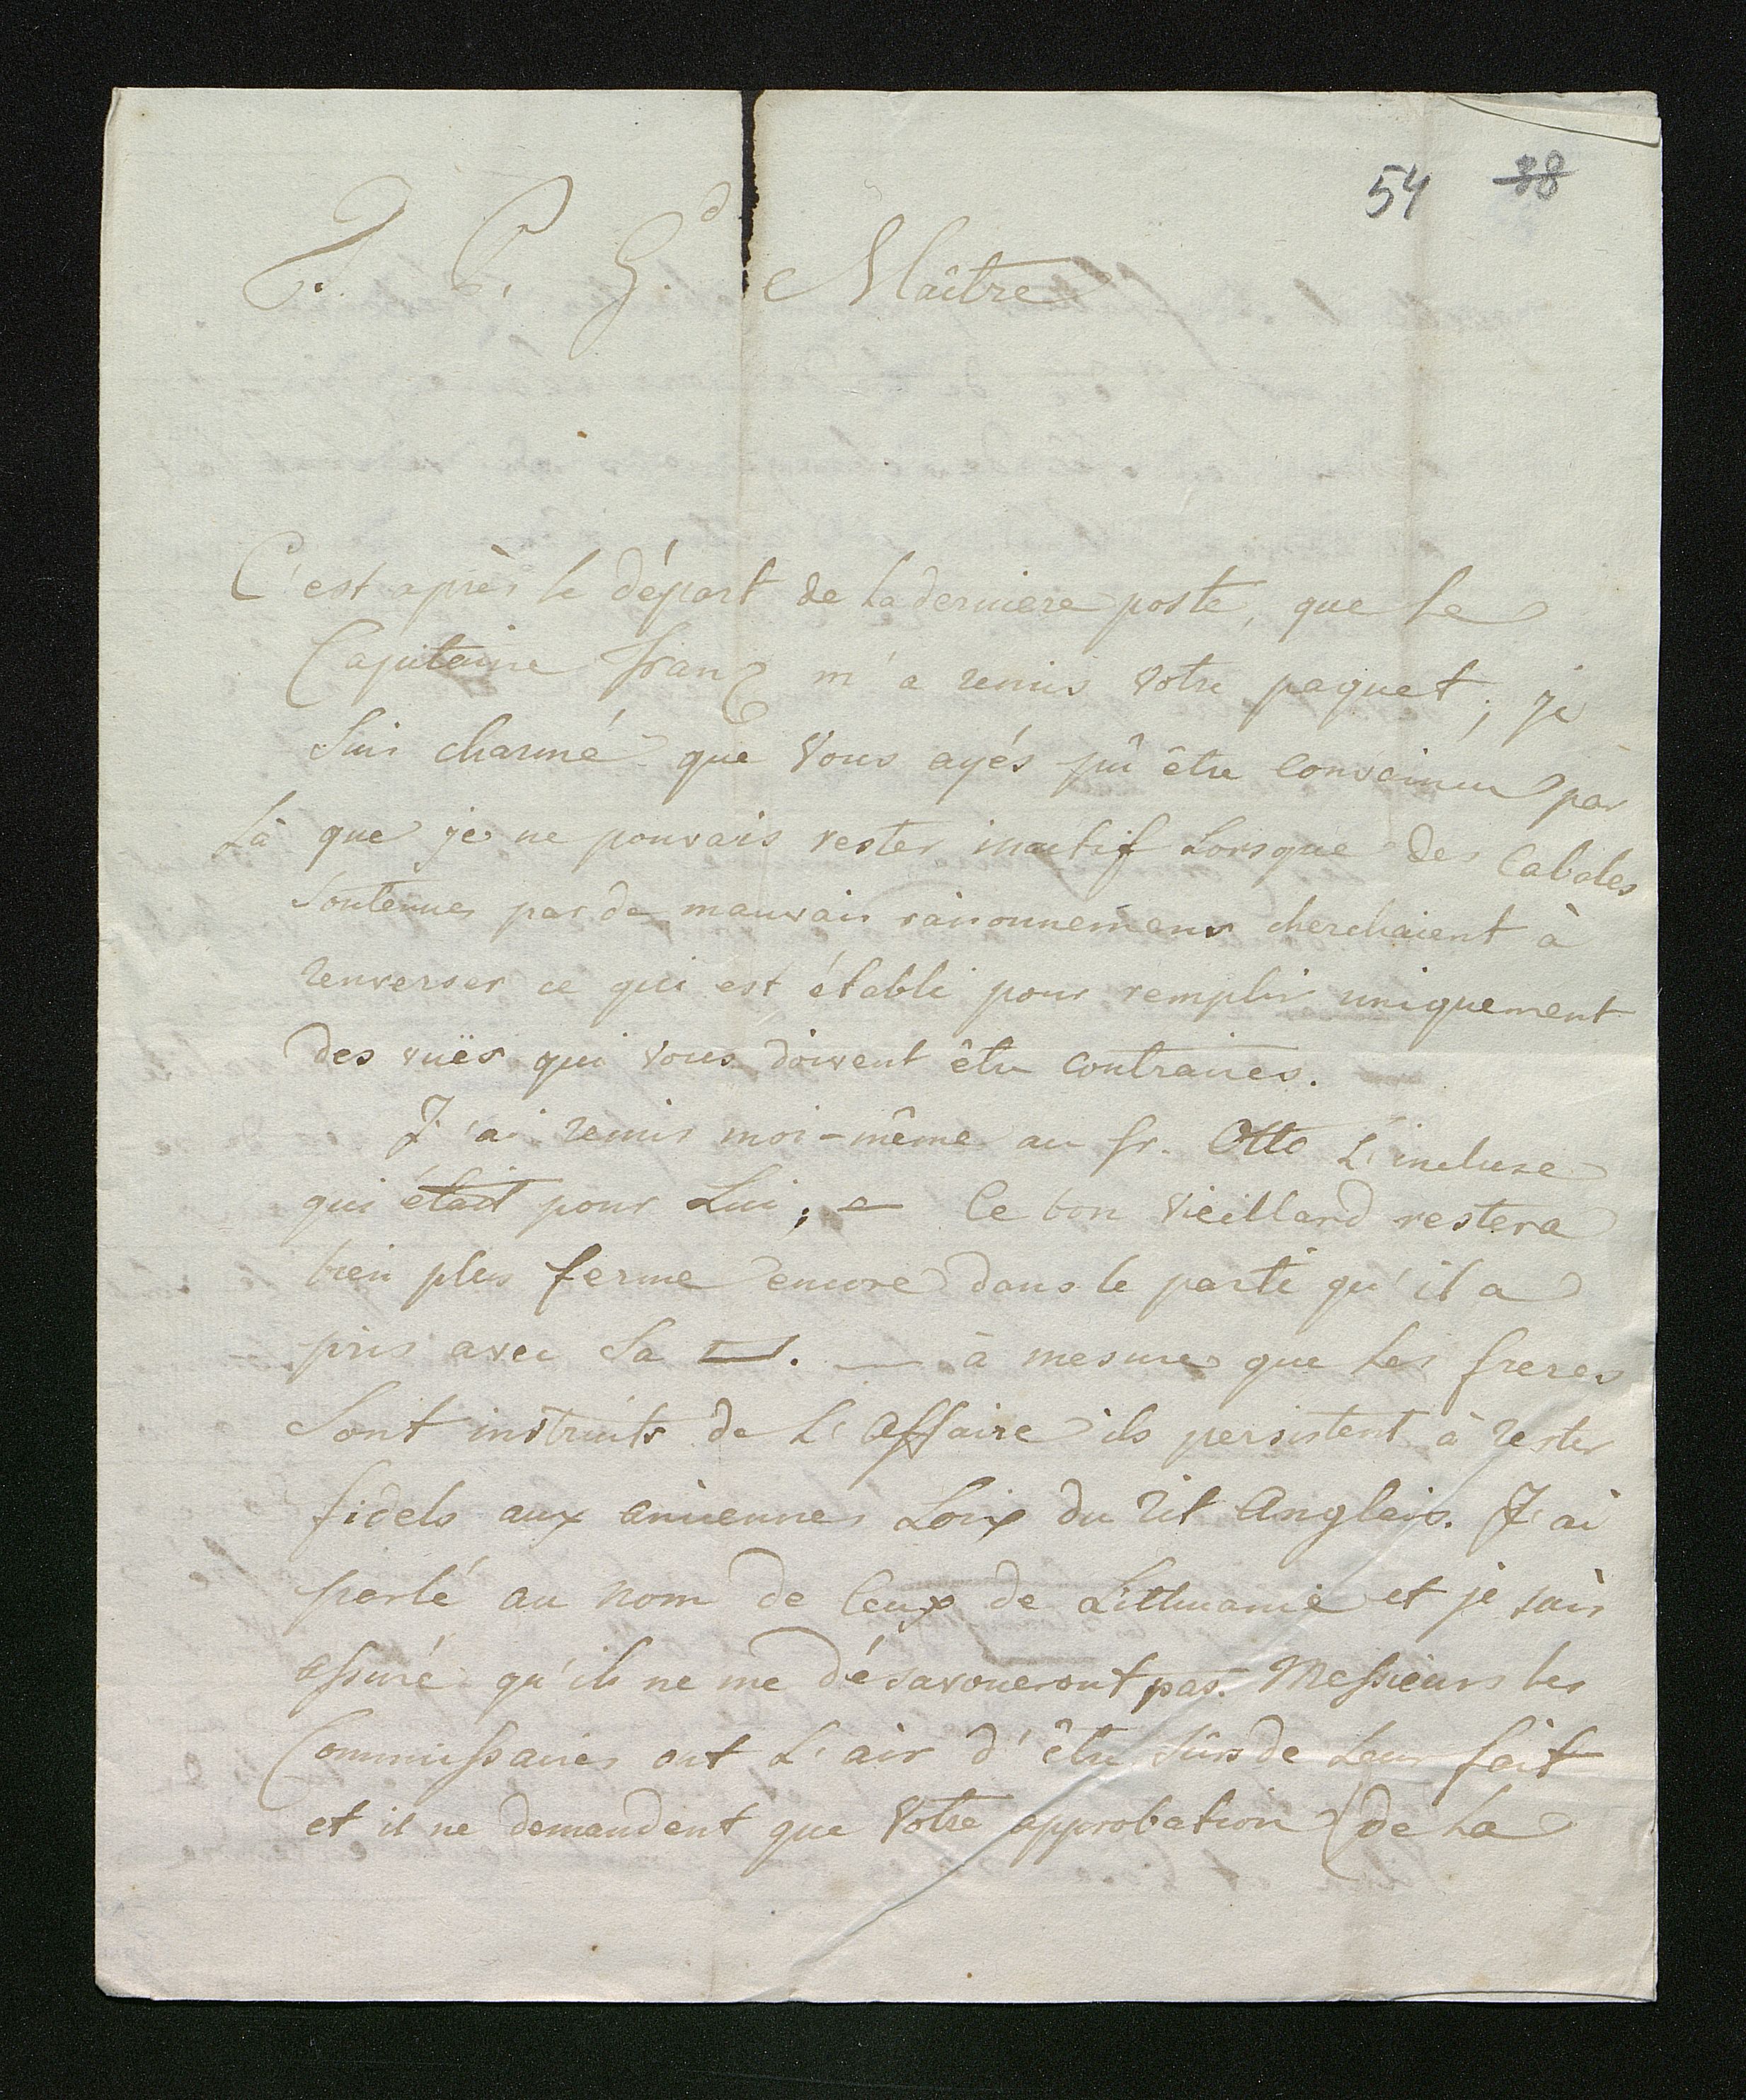 54 38
T. C. G.d Maître
C'est après le départ de la derniere poste, que le
Capitaine franz m'a remis votre paquet; je
suis charmé que vous ayés pû être convaincu par
là que je ne pouvais rester inactif lorsque des Cabales
soutenues par de mauvais raisonnemens cherchaient à
renverser ce qui est établi pour remplir uniquement
des vuës qui vous doivent être contraires.
J'ai remis moi-même au fr. Otto l'incluse
qui était pour lui; — Ce bon vieillard restera
bien plus ferme encore dans le parti qu'il a
pris avec sa ▭. — à mesure que les freres
sont instruits de l'Affaire ils persistent à rester
fidels aux anciennes Loix du rit Anglais. J'ai
parlé au nom de Ceux de Litthuanie et je suis
assuré qu'ils ne me désavoueront pas. Messieurs les
Commissaires ont l'air d'être sûrs de leur fait
et il ne demandent que votre approbation (de la